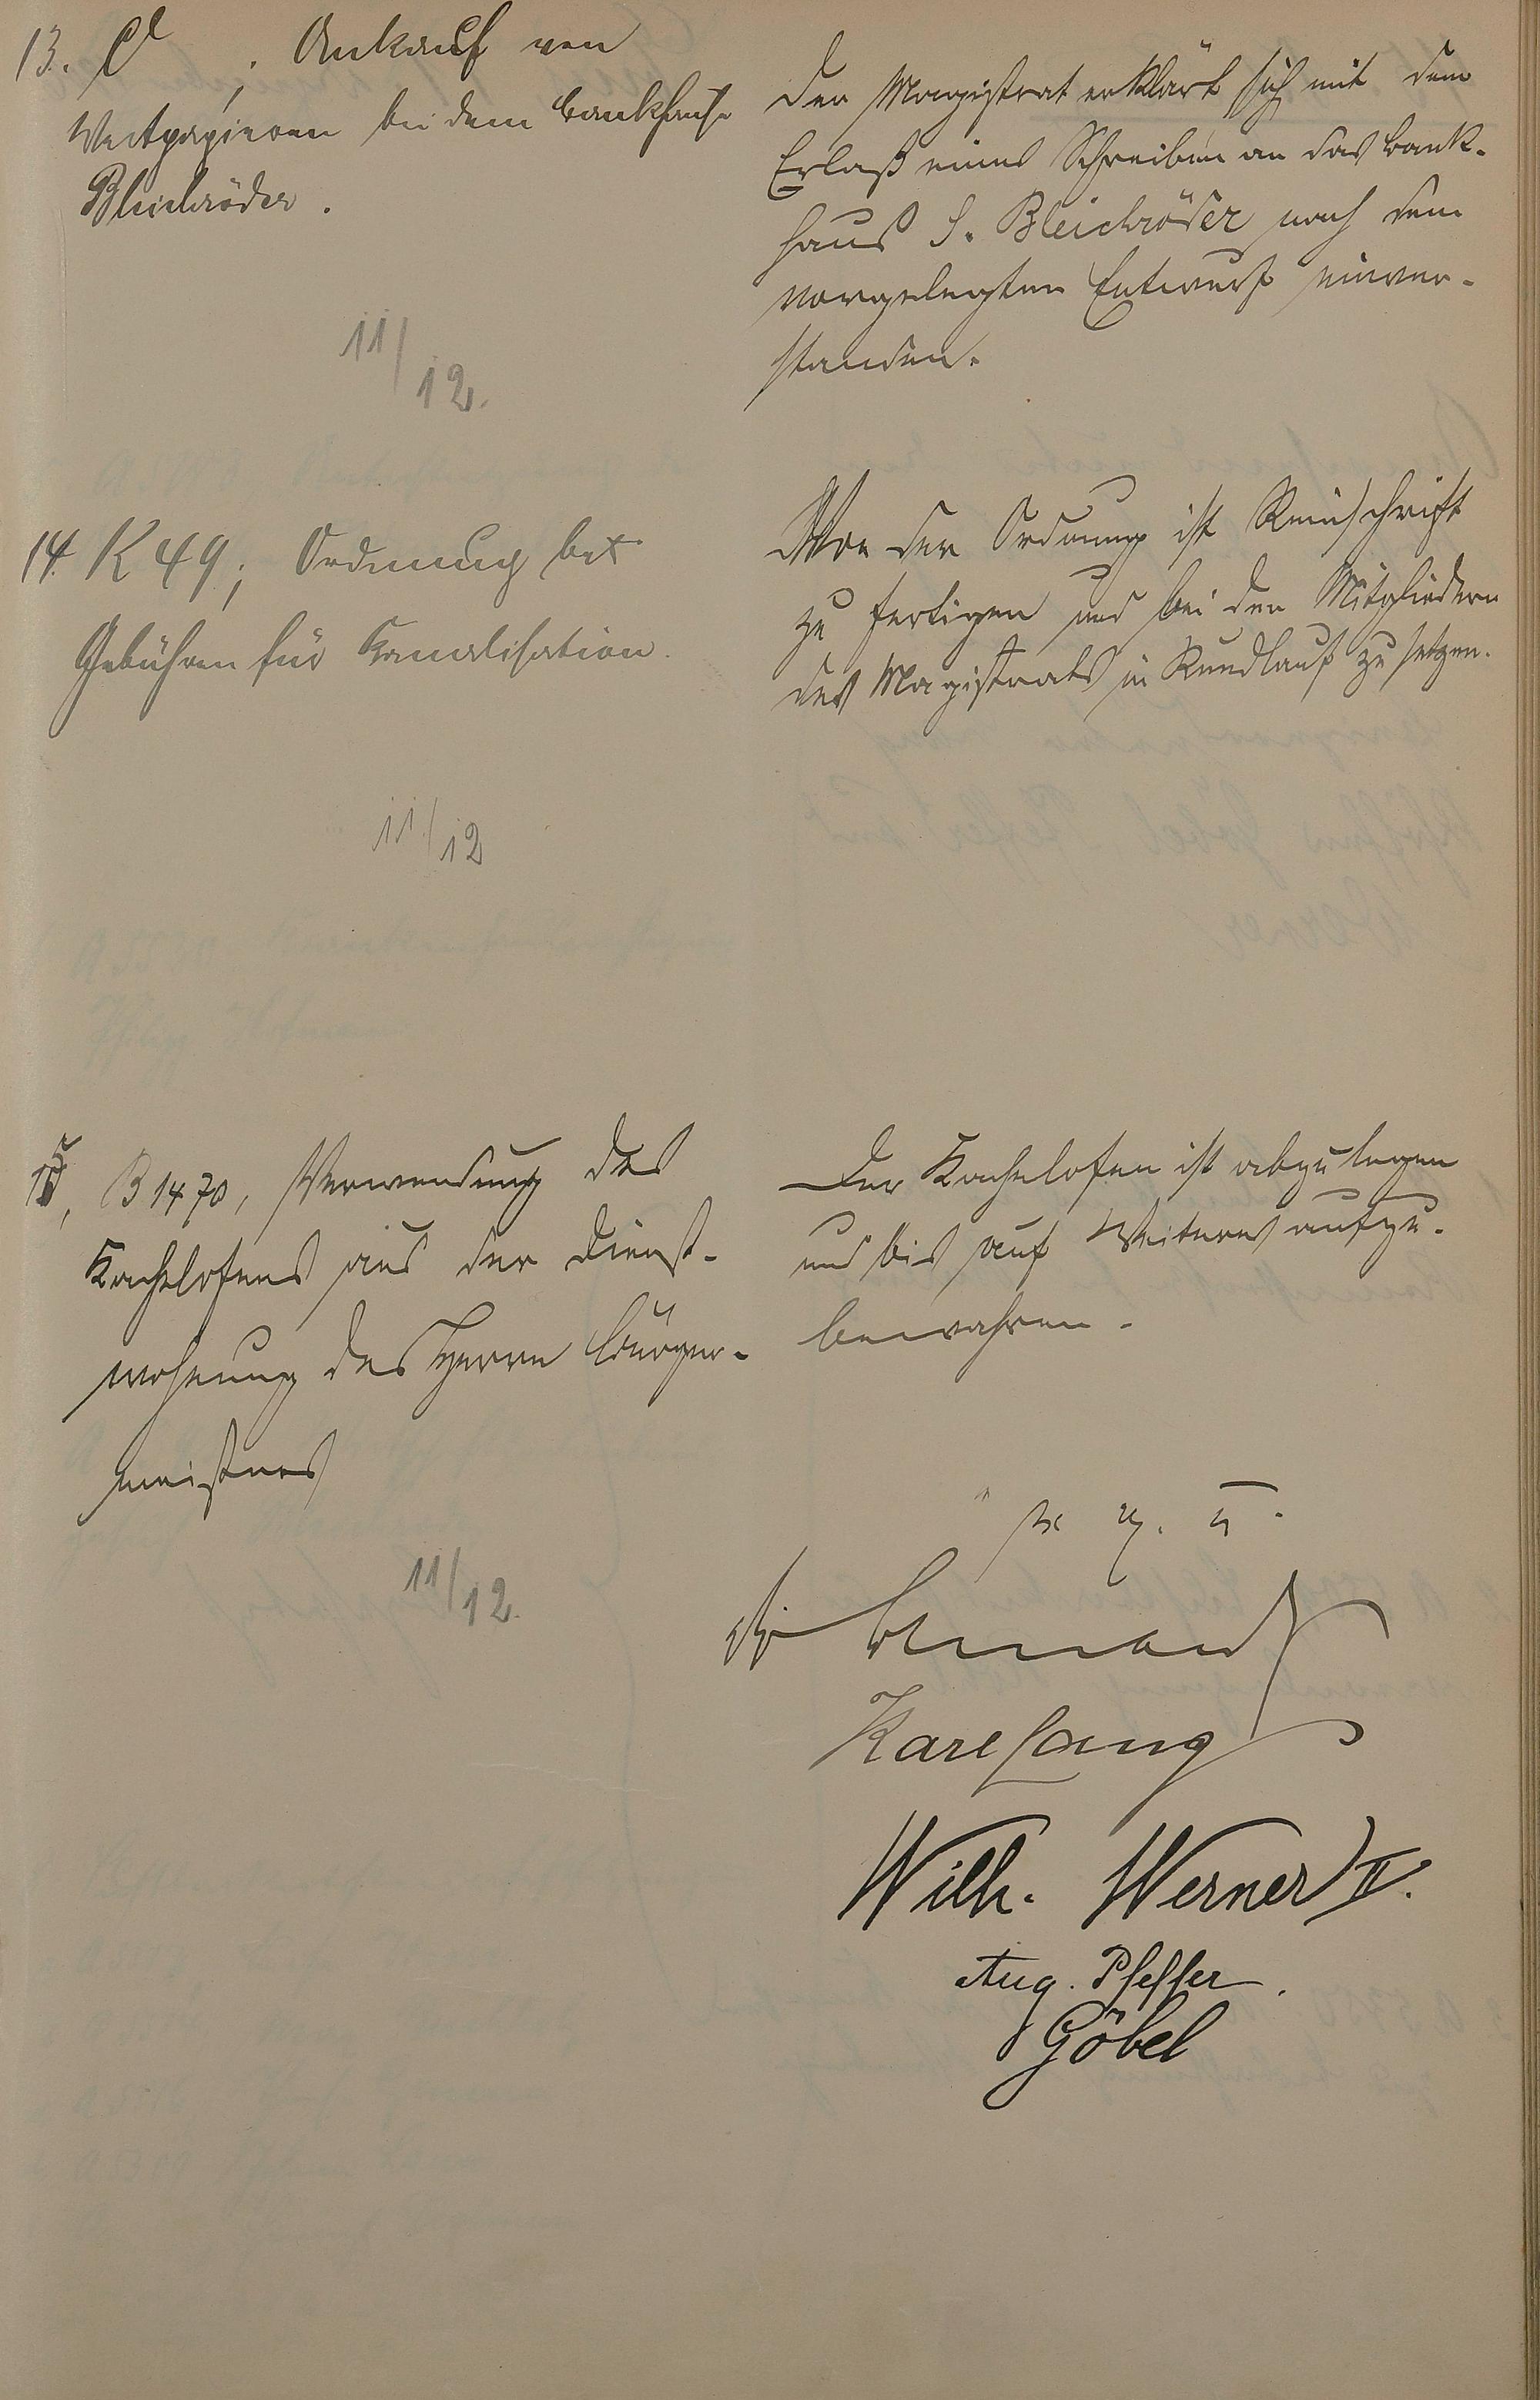 13. A ; Ankauf von
Wertpapieren bei dem Bankhause
Bleichröder.
Der Magistrat erklärt sich mit dem
Erlaß eines Schreiben an das Bank-
haus S. Bleichröder nach dem
vorgelegten Entwurf einver-
standen.
11/12.
14. K 49; Ordnung betr
Gebühren für Kanalisation.
Von der Ordnung ist Reinschrift
zu fertigen und bei den Mitgliedern
des Magistrats in Rundlauf zu setzen.
11/12
15, B 1470, Verwendung des
Kachelofens aus der Dienst-
wohnung des Herrn Bürger-
meisters
Der Kachelofen ist abzulegen
und bis auf Weiteres aufzu-
bewahren.
11/12.
Karl Lang
Wilh. Werner II.
Aug. Pfeffer.
Göbel